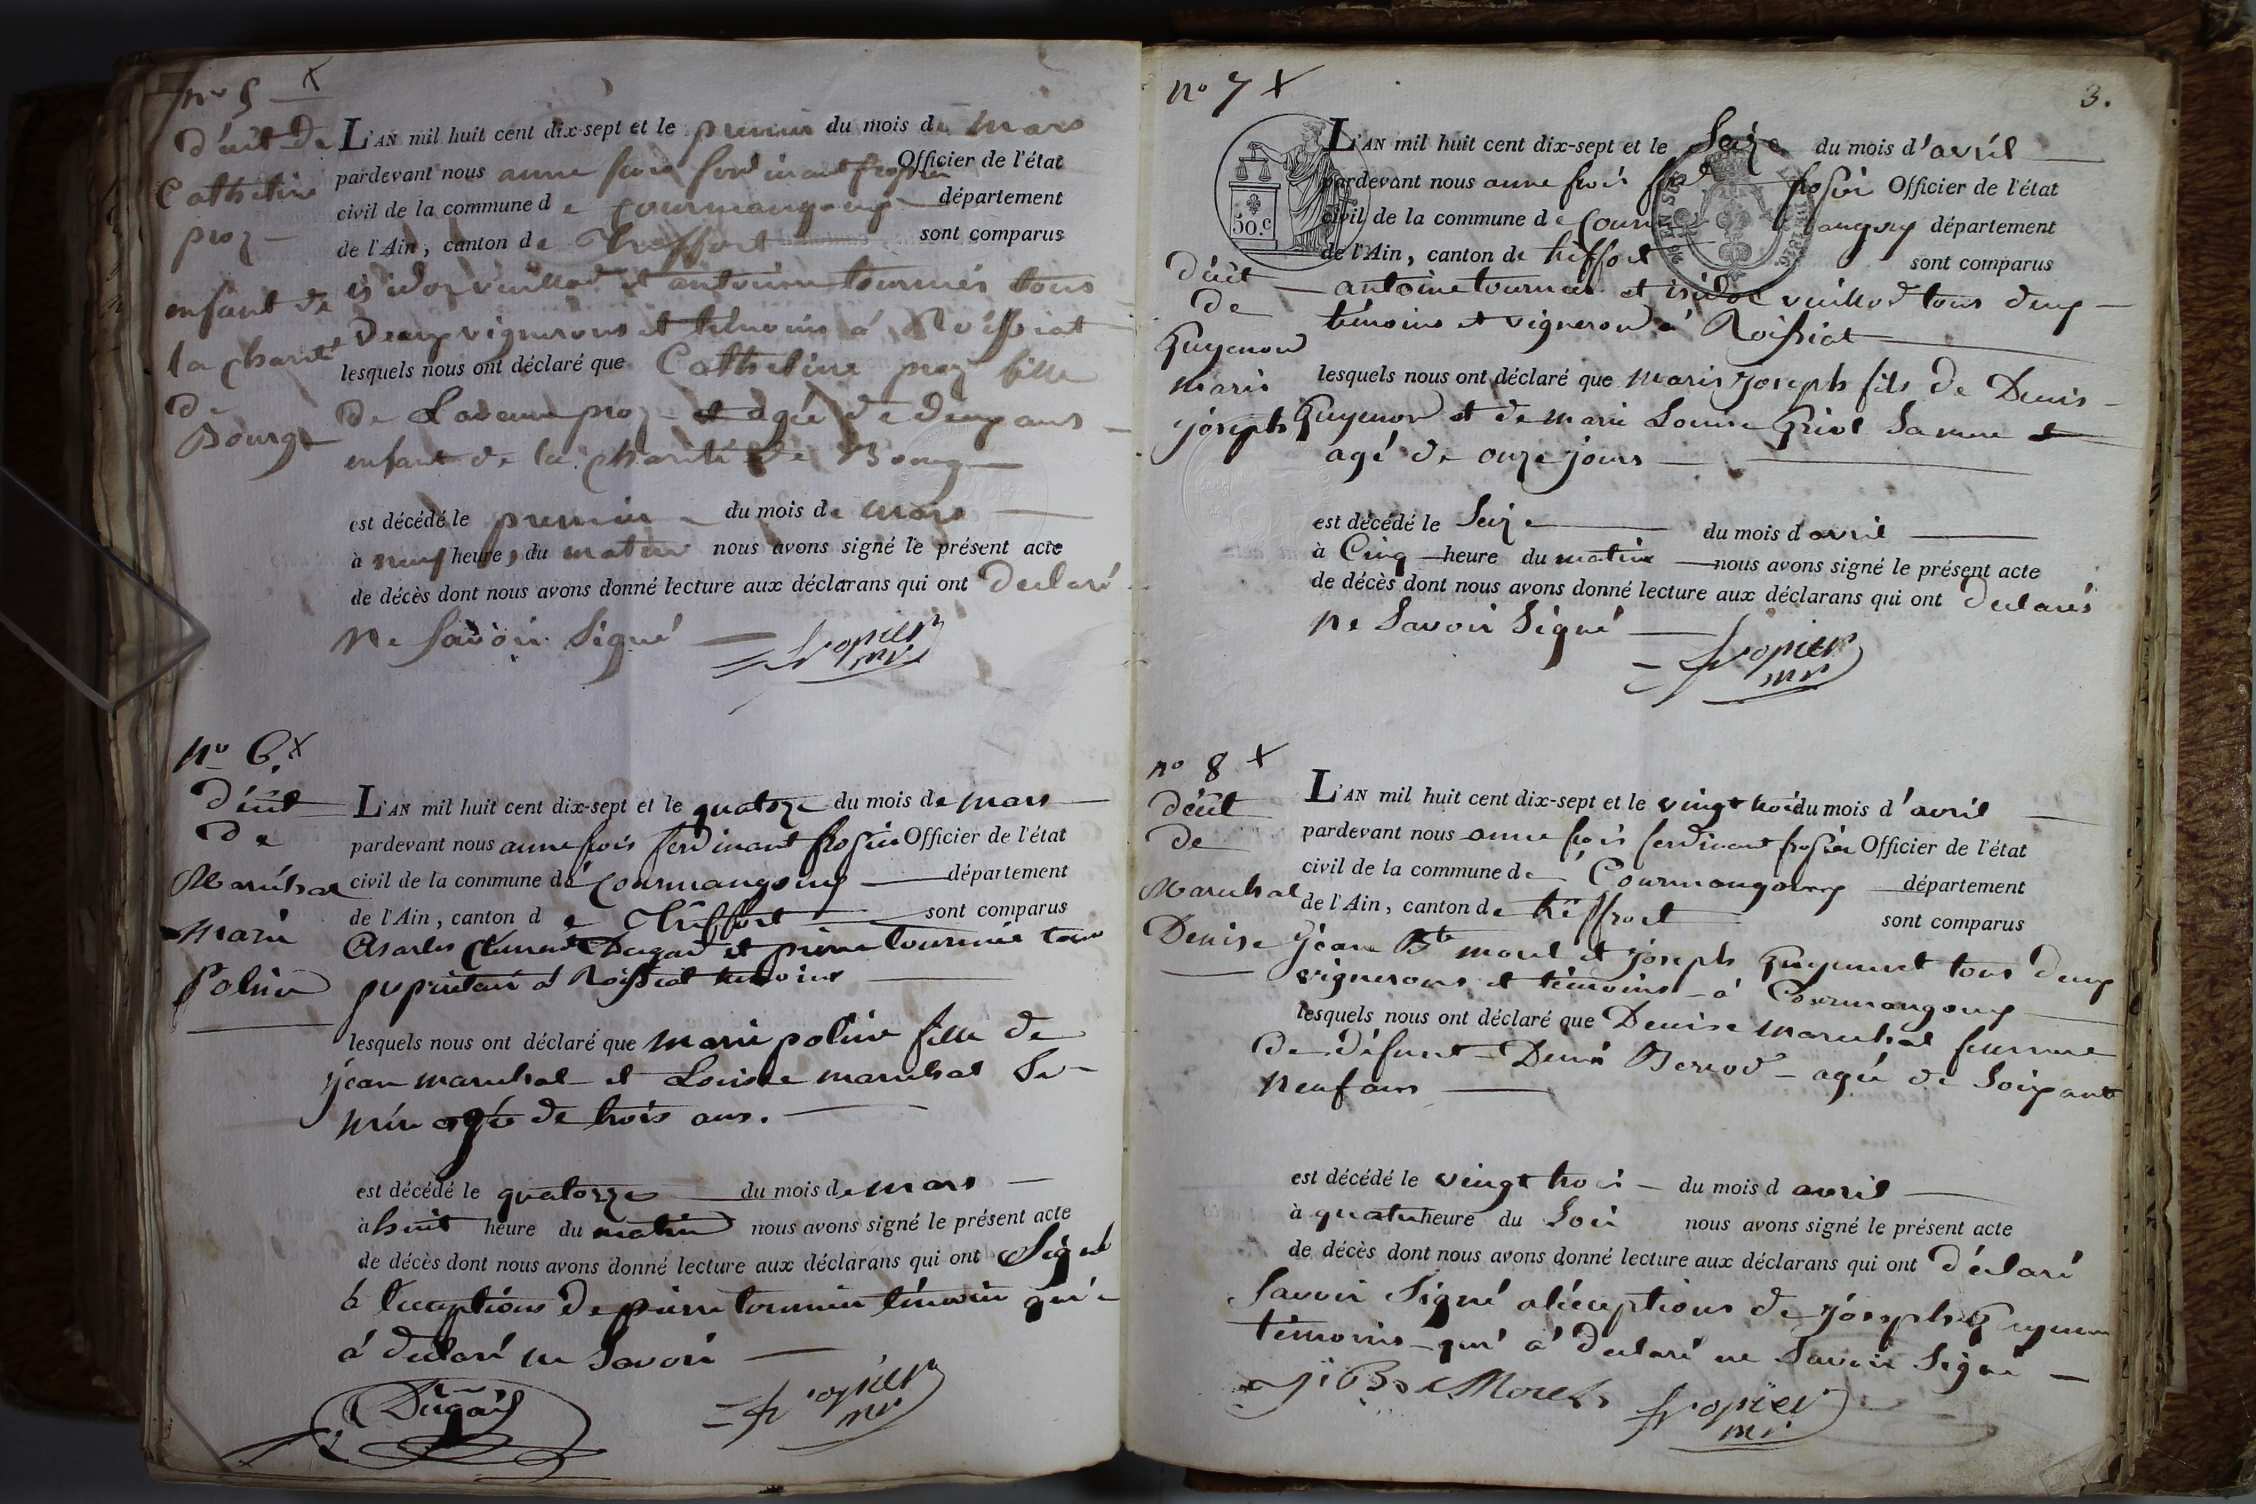 no 5 X
décét de
Catherine
proz
enfant de
la charité
de
Bourg
L'AN mil huit cent dix-sept et le premier du mois de mars
pardevant nous anne frois ferdinant fropier Officier de l'état
civil de la commune de Courmangoux département
de l'Ain, canton de Treffort sont comparus
isidor vuillod et antoine tournier tous
deux vignerons et témoins à Roissiat
lesquels nous ont déclaré que Catherine proz fille
de proz et agée de deux ans
enfant de la charité de Bourg
est décédé le premier du mois de mars
à neuf heures du matin nous avons signé le présent acte
de décès dont nous avons donné lecture aux déclarans qui ont declaré
ne Savoir Signé
fropier
mr
no 6. X
décét
de
Maréchal
marie
poline
L'AN mil huit cent dix-sept et le quatorze du mois de mars
pardevant nous anne frois ferdinant fropier Officier de l'état
civil de la commune de Courmangoux département
de l'Ain, canton de Treffort sont comparus
Charles Clement Dugad et pierre tournier tous
propriétair à Roissiat temoins
lesquels nous ont déclaré que marie poline fille de
jean marechal et Louise marechal Sa
mére agée de trois ans.
est décédé le quatorze du mois de mars
à huit heure du matin nous avons signé le présent acte
de décès dont nous avons donné lecture aux déclarans qui ont Signé
à l'eception de pierre tournier témoin qui
à declaré ne Savoir
Dugad
fropier
mr
3.
no 7 X
50.c
décét
de
Guyenod
marie
joseph
L'AN mil huit cent dix-sept et le Seize du mois d'avril
pardevant nous anne frois fropier Officier de l'état
civil de la commune de Courmangoux département
de l'Ain, canton de treffort sont comparus
antoine tournier et isidor vuillod tous deux
témoins et vigneron à Roissiat
lesquels nous ont déclaré que marie joseph fils de Denis
Guyenod et de marie Louise Sa mere
agé de onze jours
est décédé le Seize du mois d avril
à Cinq heure du matin nous avons signé le présent acte
de décès dont nous avons donné lecture aux déclarans qui ont declarés
ne Savoir Signé
fropier
mr
no 8 X
décét
de
Marechal
Denise
L'AN mil huit cent dix-sept et le vingt trois du mois d'avril
pardevant nous anne frois ferdinant fropier Officier de l'état
civil de la commune de Courmangoux département
de l'Ain, canton de treffort sont comparus
jean Bte morel et joseph Guyennet tous deux
vignerons et témoins à Courmangoux
lesquels nous ont déclaré que Denise marechal femme
de défunt Denis Berrod agée de Soixante
neuf ans
est décédé le vingt trois du mois d avril
à quatre heure du Soir nous avons signé le présent acte
de décès dont nous avons donné lecture aux déclarans qui ont déclaré
Savoir Signé aléception de joseph
témoins qui à declaré ne Savoir Signé
j Bte Morel
fropier
mr